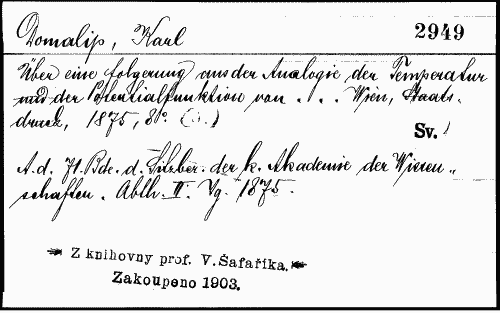 Domalip, Karl
2949
Über eine Folgerung aus der Analogie der Temperatur
und der Potentialfunktion von . . . Wien, Staats-
druck, 1875, 8°.
Sv. 1
A. d. 71. Bde. d. Sitzber. der k. Akademie der Wissen„
schaften. Abth. II. Vg. 1875.
Z knihovny prof. V. Šafaříka.
Zakoupeno 1903.